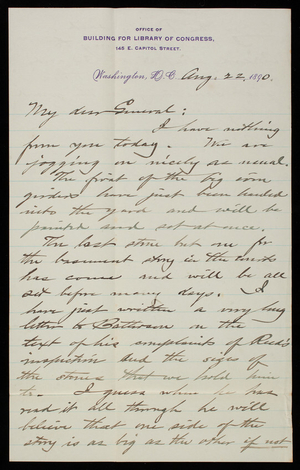 OFFICE OF
BUILDING FOR LIBRARY OF CONGRESS,
145 E. CAPITOL STREET.
Washington, D.C. Aug. 22, 1890.
My dear General:
I have nothing
from you today. We are
jogging on nicely as usual.
The first of the big iron
girders have just been landed
into the yard and will be
painted and set at once.
The last stone but one for
the basement story in the courts
has come and will be all
set before many days. I
have just written a very long
letter to Patterson on the
text of his complaints of Rees's
inspection and the sizes of
the stones that we hold him
to. I guess when he has
read it all through he will
believe that one side of the
story is as big as the other if not